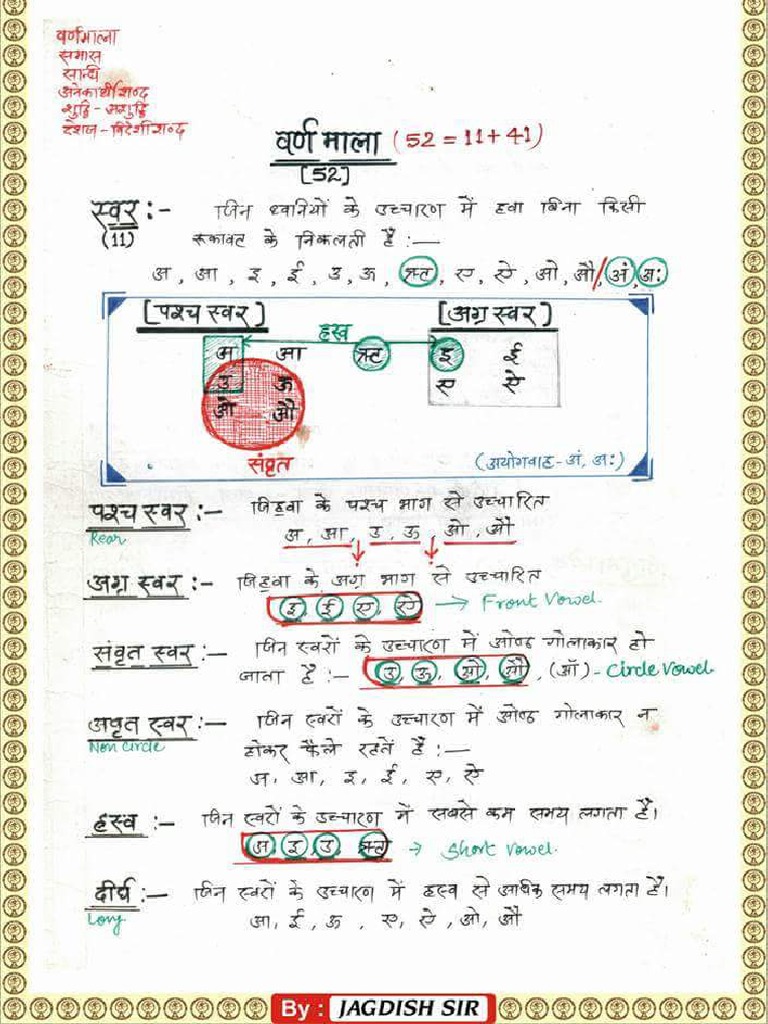 वर्णमाला
समास
सन्धि
अनेकार्थी शब्द
शुद्धि - अशुद्धि
देशज - विदेशी शब्द
वर्ण माला (52 = 11 + 41)
[52]
स्वर :- जिन ध्वनियों के उच्चारण में हवा बिना किसी
(11) रूकावट के निकलती है :—
अ, आ, इ, ई, उ, ऊ, ऋ, ए, ऐ, ओ, औ / अं, अः
[पश्च स्वर] [अग्र स्वर]
ह्रस्व
अ आ ऋ इ ई
उ ऊ ए ऐ
ओ औ
संवृत (अयोगवाह - अं, अः)
पश्च स्वर :- जिहवा के पश्च भाग से उच्चारित
Rear अ, आ, उ, ऊ, ओ, औ
अग्र स्वर :- जिहवा के अग्र भाग से उच्चारित
इ, ई, ए, ऐ → Front Vowel.
संवृत स्वर :- जिन स्वरों के उच्चारण में ओष्ठ गोलाकार हो
जाता है :- उ, ऊ, ओ, औ, (ऑ) - Circle Vowel
अवृत स्वर :- जिन स्वरों के उच्चारण में ओष्ठ गोलाकार न
Non Circle होकर फैले रहतें है :—
अ, आ, इ, ई, ए, ऐ
ह्रस्व :- जिन स्वरों के उच्चारण में सबसे कम समय लगता है।
अ, इ, उ, ऋ → Short Vowel.
दीर्घ :- जिन स्वरों के उच्चारण में ह्रस्व से अधिक समय लगता है।
Long आ, ई, ऊ, ए, ऐ, ओ, औ
By : JAGDISH SIR